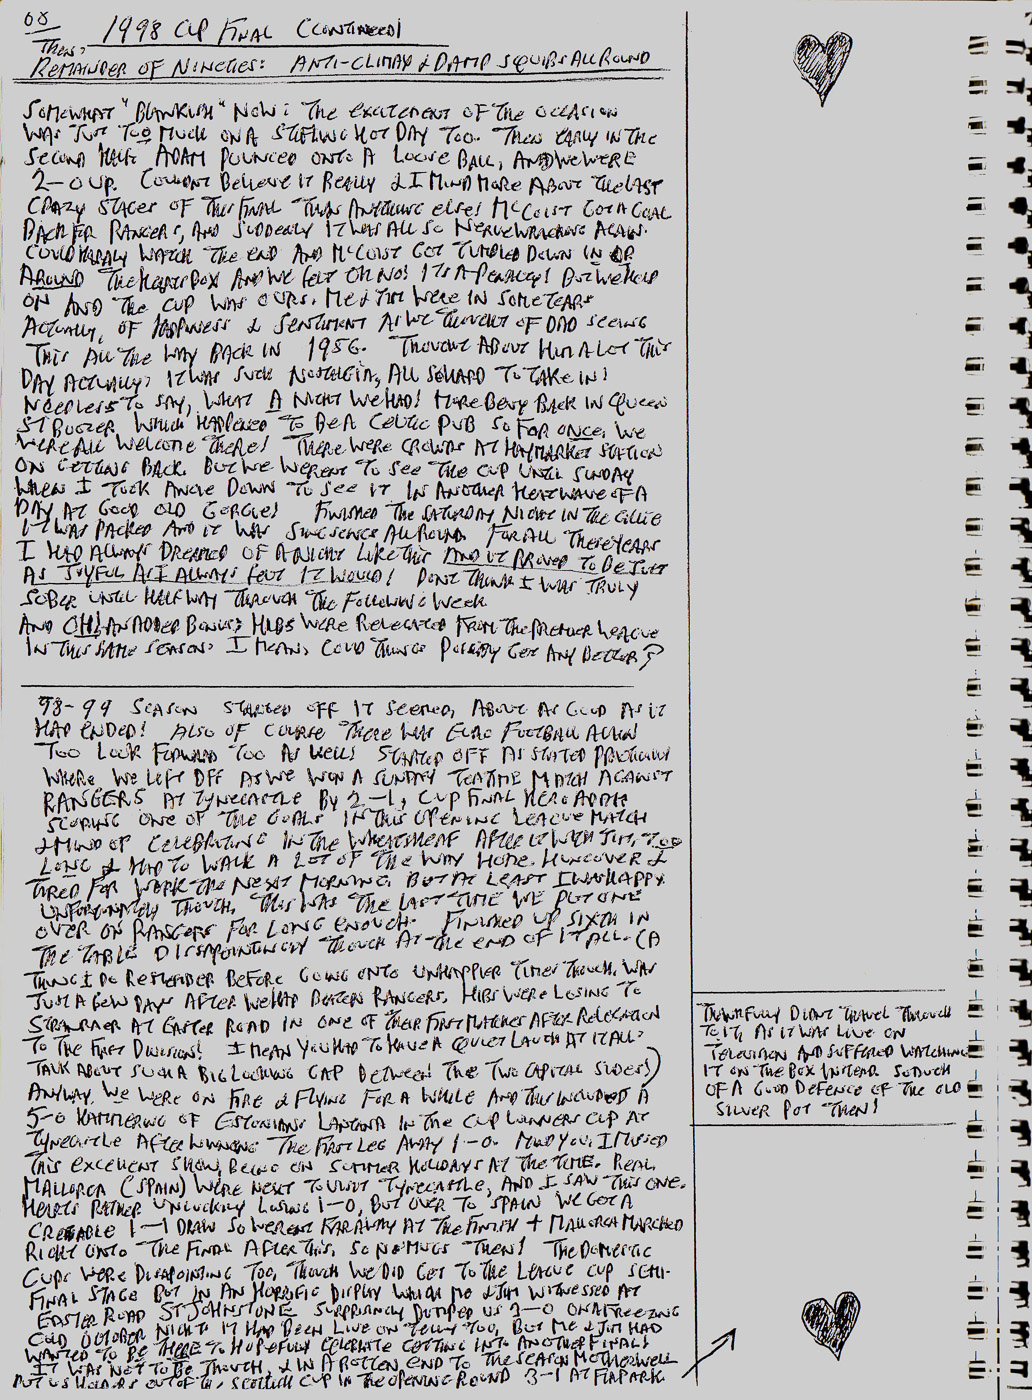 68
1998 CUP FINAL (CONTINUED)
THEN:
REMAINDER OF NINETIES: ANTI-CLIMAX & DAMP SQUIBS ALL ROUND
SOMEWHAT "BLANKISH" NOW: THE EXCITEMENT OF THE OCCASION
WAS JUST TOO MUCH ON A STIFLING HOT DAY TOO. THEN EARLY IN THE
SECOND HALF ADAM POUNCED ONTO A LOOSE BALL, AND WE WERE
2-0 UP. COULDNT BELIEVE IT REALLY & I MIND MORE ABOUT THE LAST
CRAZY STAGES OF THIS FINAL THAN ANYTHING ELSE! McCOIST GOT A GOAL
BACK FOR RANGERS, AND SUDDENLY IT WAS ALL SO NERVEWRACKING AGAIN.
COULD HARDLY WATCH THE END AND McCOIST GOT TUMBLED DOWN IN OR
AROUND THE HEARTS BOX AND WE FELT OH NO! ITS A PENALTY! BUT WE HELD
ON AND THE CUP WAS OURS. ME & JIM WERE IN SOME TEARS
ACTUALLY, OF HAPPINESS & SENTIMENT AS WE THOUGHT OF DAD SEEING
THIS ALL THE WAY BACK IN 1956. THOUGHT ABOUT HIM A LOT THIS
DAY ACTUALLY: IT WAS SUCH NOSTALGIA, ALL SO HARD TO TAKE IN!
NEEDLESS TO SAY, WHAT A NIGHT WE HAD! MORE BEVY BACK IN QUEEN
ST BOOZER WHICH HAPPENED TO BE A CELTIC PUB SO FOR ONCE, WE
WERE ALL WELCOME THERE! THERE WERE CROWDS AT HAYMARKET STATION
ON GETTING BACK BUT WE WERENT TO SEE THE CUP UNTIL SUNDAY
WHEN I TOOK ANGIE DOWN TO SEE IT IN ANOTHER HEATWAVE OF A
DAY AT GOOD OLD GORGIE! FINISHED THE SATURDAY NIGHT IN THE GILLIE
IT WAS PACKED AND IT WAS SINGSONGS ALL ROUND. FOR ALL THESE YEARS
I HAD ALWAYS DREAMED OF A NIGHT LIKE THIS AND IT PROVED TO BE JUST
AS JOYFUL AS I ALWAYS FELT IT WOULD! DONT THINK I WAS TRULY
SOBER UNTIL HALF WAY THROUGH THE FOLLOWING WEEK
AND OH! AN ADDED BONUS: HIBS WERE RELEGATED FROM THE PREMIER LEAGUE
IN THIS SAME SEASON: I MEAN, COULD THINGS POSSIBLY GET ANY BETTER?
98-99 SEASON STARTED OFF IT SEEMED, ABOUT AS GOOD AS IT
HAD ENDED! ALSO OF COURSE THERE WAS EURO FOOTBALL AGAIN
TOO LOOK FORWARD TOO AS WELL! STARTED OFF AS STATED PREVIOUSLY
WHERE WE LEFT OFF AS WE WON A SUNDAY TEATIME MATCH AGAINST
RANGERS AT TYNECASTLE BY 2-1, CUP FINAL HERO ADAM
SCORING ONE OF THE GOALS IN THIS OPENING LEAGUE MATCH
& MIND OF CELEBRATING IN THE WHEATSHEAF AFTER IT WITH JIM, TOO
LONG & HAD TO WALK A LOT OF THE WAY HOME. HUNGOVER &
TIRED FOR WORK THE NEXT MORNING. BUT AT LEAST I WAS HAPPY.
UNFORTUNATELY THOUGH, THIS WAS THE LAST TIME WE PUT ONE
OVER ON RANGERS FOR LONG ENOUGH. FINISHED UP SIXTH IN
THE TABLE DISSAPOINTINGLY THOUGH AT THE END OF IT ALL. (A
THING I DO REMEMBER BEFORE GOING ONTO UNHAPPIER TIMES THOUGH, WAS
JUST A FEW DAYS AFTER WE HAD BEATEN RANGERS, HIBS WERE LOSING TO
STRANRAER AT EASTER ROAD IN ONE OF THEIR FIRST MATCHES AFTER RELEGATION
TO THE FIRST DIVISION! I MEAN YOU HAD TO HAVE A QUIET LAUGH AT IT ALL:
TALK ABOUT SUCH A BIG LOOKING GAP BETWEEN THE TWO CAPITAL SIDES!)
ANYWAY, WE WERE ON FIRE & FLYING FOR A WHILE AND THIS INCLUDED A
5-0 HAMMERING OF ESTONIANS LANTANA IN THE CUP WINNERS CUP AT
TYNECASTLE AFTER WINNING THE FIRST LEG AWAY 1-0. MIND YOU, I MISSED
THIS EXCELLENT SHOW, BEING ON SUMMER HOLIDAYS AT THE TIME. REAL
MALLORCA (SPAIN) WERE NEXT TO VISIT TYNECASTLE, AND I SAW THIS ONE.
HEARTS RATHER UNLUCKILY LOSING 1-0, BUT OVER TO SPAIN WE GOT A
CREDABLE 1-1 DRAW SO WERENT FAR AWAY AT THE FINISH + MALLORCA MARCHED
RIGHT ONTO THE FINAL AFTER THIS, SO NO MUGS THEN! THE DOMESTIC
CUPS WERE DISAPOINTING TOO, THOUGH WE DID GET TO THE LEAGUE CUP SEMI-
FINAL STAGE BUT IN AN HORRIFIC DISPLAY WHICH ME & JIM WITNESSED AT
EASTER ROAD ST JOHNSTONE SURPRISINGLY DUMPED US 3-0 ON A FREEZING
COLD OCTOBER NIGHT: IT HAD BEEN LIVE ON TELLY TOO, BUT ME & JIM HAD
WANTED TO BE THERE TO HOPEFULLY CELEBRATE GETTING INTO ANOTHER FINAL!
IT WAS NOT TO BE THOUGH, & IN A ROTTEN END TO THE SEASON MOTHERWELL
PUT US HOLDERS OUT OF THE SCOTTISH CUP IN THE OPENING ROUND 3-1 AT FIR PARK
THANKFULLY DIDNT TRAVEL THROUGH
TO IT, AS IT WAS LIVE ON
TELEVISION AND SUFFERED WATCHING
IT ON THE BOX INSTEAD. SO MUCH
OF A GOOD DEFENCE OF THE OLD
SILVER POT THEN!